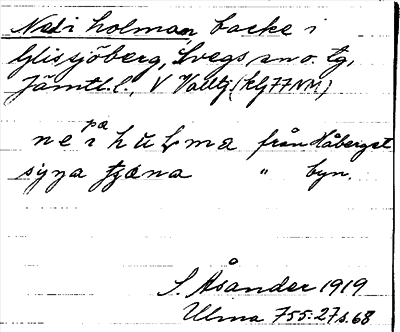 Nedi holman, backe i
Glissjöberg, Svegs, sn o. tg,
Jämtl. l., V Vattj. (kfJ77NM)
på
ne i hulma från Håberget
syna tjæna " byn.
S. Åsander 1919
Ulma 755:27 s. 68